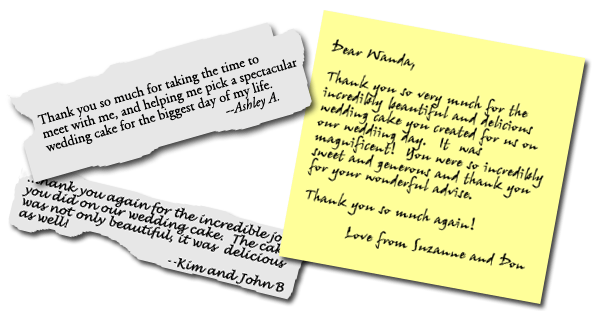 Thank you so much for taking the time to
meet with me, and helping me pick a spectacular
wedding cake for the biggest day of my life.
--Ashley A.
...Thank you again for the incredible jo
you did on our wedding cake. The cak
was not only beautiful, it was delicious
as well!
--Kim and John B
Dear Wanda,
Thank you so very much for the
incredibly beautiful and delicious
wedding cake you created for us on
our weddiing day. It was
magnificent! You were so incredibly
sweet and generous and thank you
for your wonderful advise.
Thank you so much again!
Love from Suzanne and Don